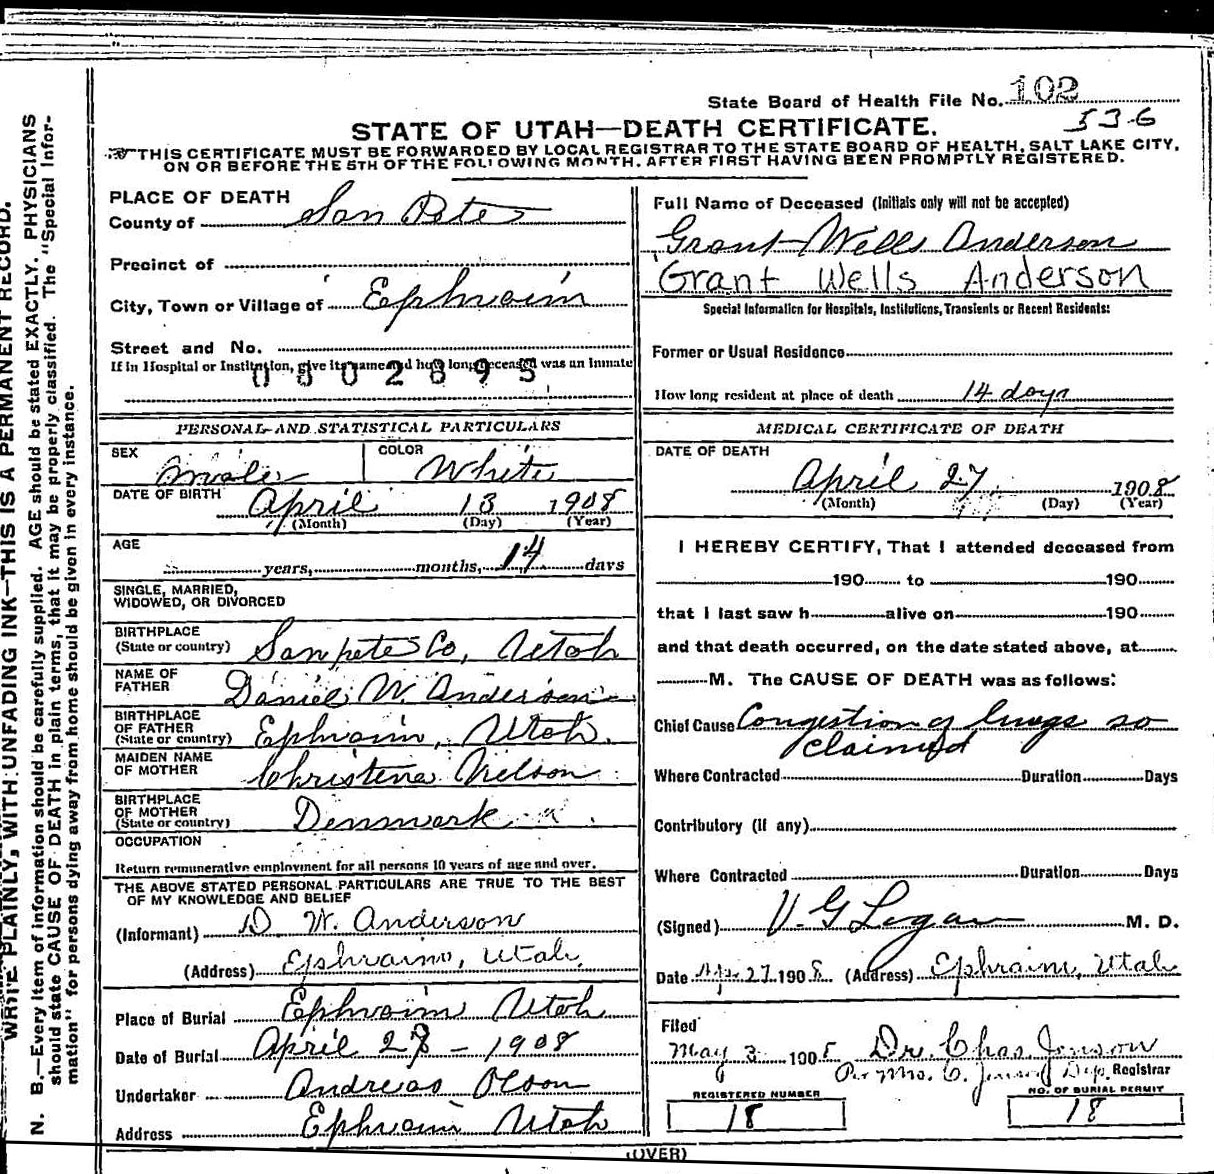 State Board of Health File No. 102
536
STATE OF UTAH—DEATH CERTIFICATE.
THIS CERTIFICATE MUST BE FORWARDED BY LOCAL REGISTRAR TO THE STATE BOARD OF HEALTH, SALT LAKE CITY,
ON OR BEFORE THE 5TH OF THE FOLLOWING MONTH, AFTER FIRST HAVING BEEN PROMPTLY REGISTERED.
WRITE PLAINLY, WITH UNFADING INK—THIS IS A PERMANENT RECORD.
N. B.—Every item of information should be carefully supplied. AGE should be stated EXACTLY. PHYSICIANS
should state CAUSE OF DEATH in plain terms, that it may be properly classified. The "Special Infor-
mation" for persons dying away from home should be given in every instance.
PLACE OF DEATH
County of San Pete
Precinct of
City, Town or Village of Ephraim
Street and No.
If in Hospital or Institution, give its name and how long deceased was an inmate
0802895
PERSONAL AND STATISTICAL PARTICULARS
SEX male
COLOR White
DATE OF BIRTH April 13 1908
(Month) (Day) (Year)
AGE
years, months, 14 days
SINGLE, MARRIED,
WIDOWED, OR DIVORCED
BIRTHPLACE
(State or country) Sanpete Co, Utah
NAME OF
FATHER Daniel W. Anderson
BIRTHPLACE
OF FATHER
(State or country) Ephraim, Utah.
MAIDEN NAME
OF MOTHER Christena Nielson
BIRTHPLACE
OF MOTHER
(State or country) Denmark
OCCUPATION
Return remunerative employment for all persons 10 years of age and over.
THE ABOVE STATED PERSONAL PARTICULARS ARE TRUE TO THE BEST
OF MY KNOWLEDGE AND BELIEF
(Informant) D. W. Anderson
(Address) Ephraim, Utah.
Place of Burial Ephraim Utah
Date of Burial April 28 - 1908
Undertaker Andreas Olson
Address Ephraim Utah
Full Name of Deceased (Initials only will not be accepted)
Grant Wells Anderson
Grant Wells Anderson
Special Information for Hospitals, Institutions, Transients or Recent Residents:
Former or Usual Residence
How long resident at place of death 14 days
MEDICAL CERTIFICATE OF DEATH
DATE OF DEATH
April 27 1908
(Month) (Day) (Year)
I HEREBY CERTIFY, That I attended deceased from
190 to 190
that I last saw h alive on 190
and that death occurred, on the date stated above, at
M. The CAUSE OF DEATH was as follows:
Chief Cause Congestion of lungs so
claimed
Where Contracted Duration Days
Contributory (if any)
Where Contracted Duration Days
(Signed) V. G Logan M. D.
Date Apr. 27. 1908 (Address) Ephraim, Utah
Filed
May 3 1908 Dr. Chas. Jenson
Per Mrs. C. Jenson Dep. Registrar
REGISTERED NUMBER
18
NO. OF BURIAL PERMIT
18
(OVER)